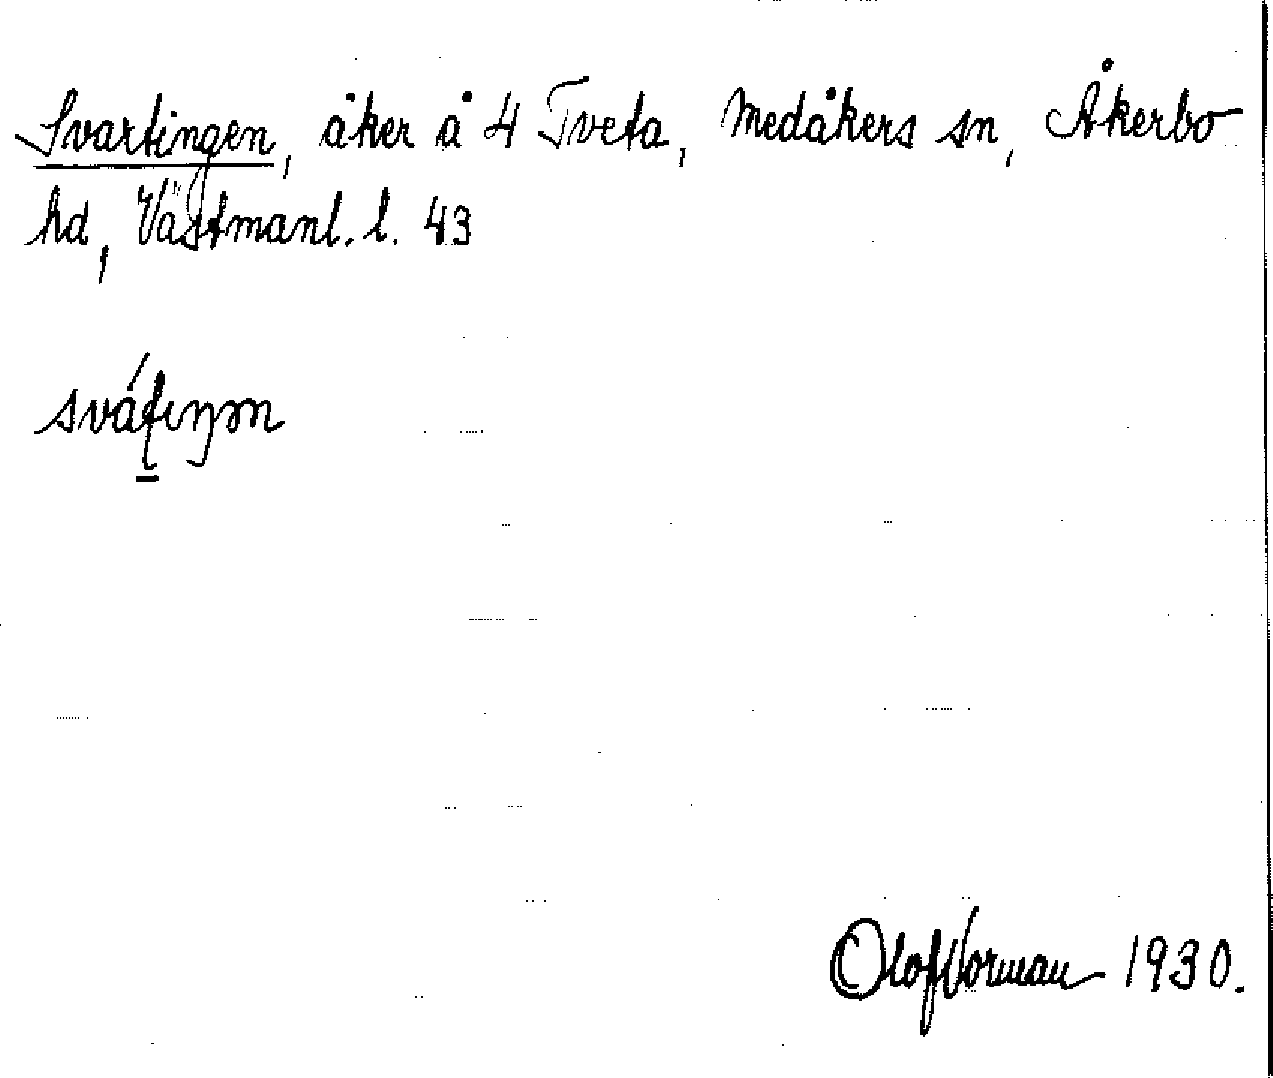 Svartingen, åker å 4 Tveta, Medåkers sn, Åkerbo
hd, Västmanl. l. 43
sváʈıŋən
Olof Norman 1930.